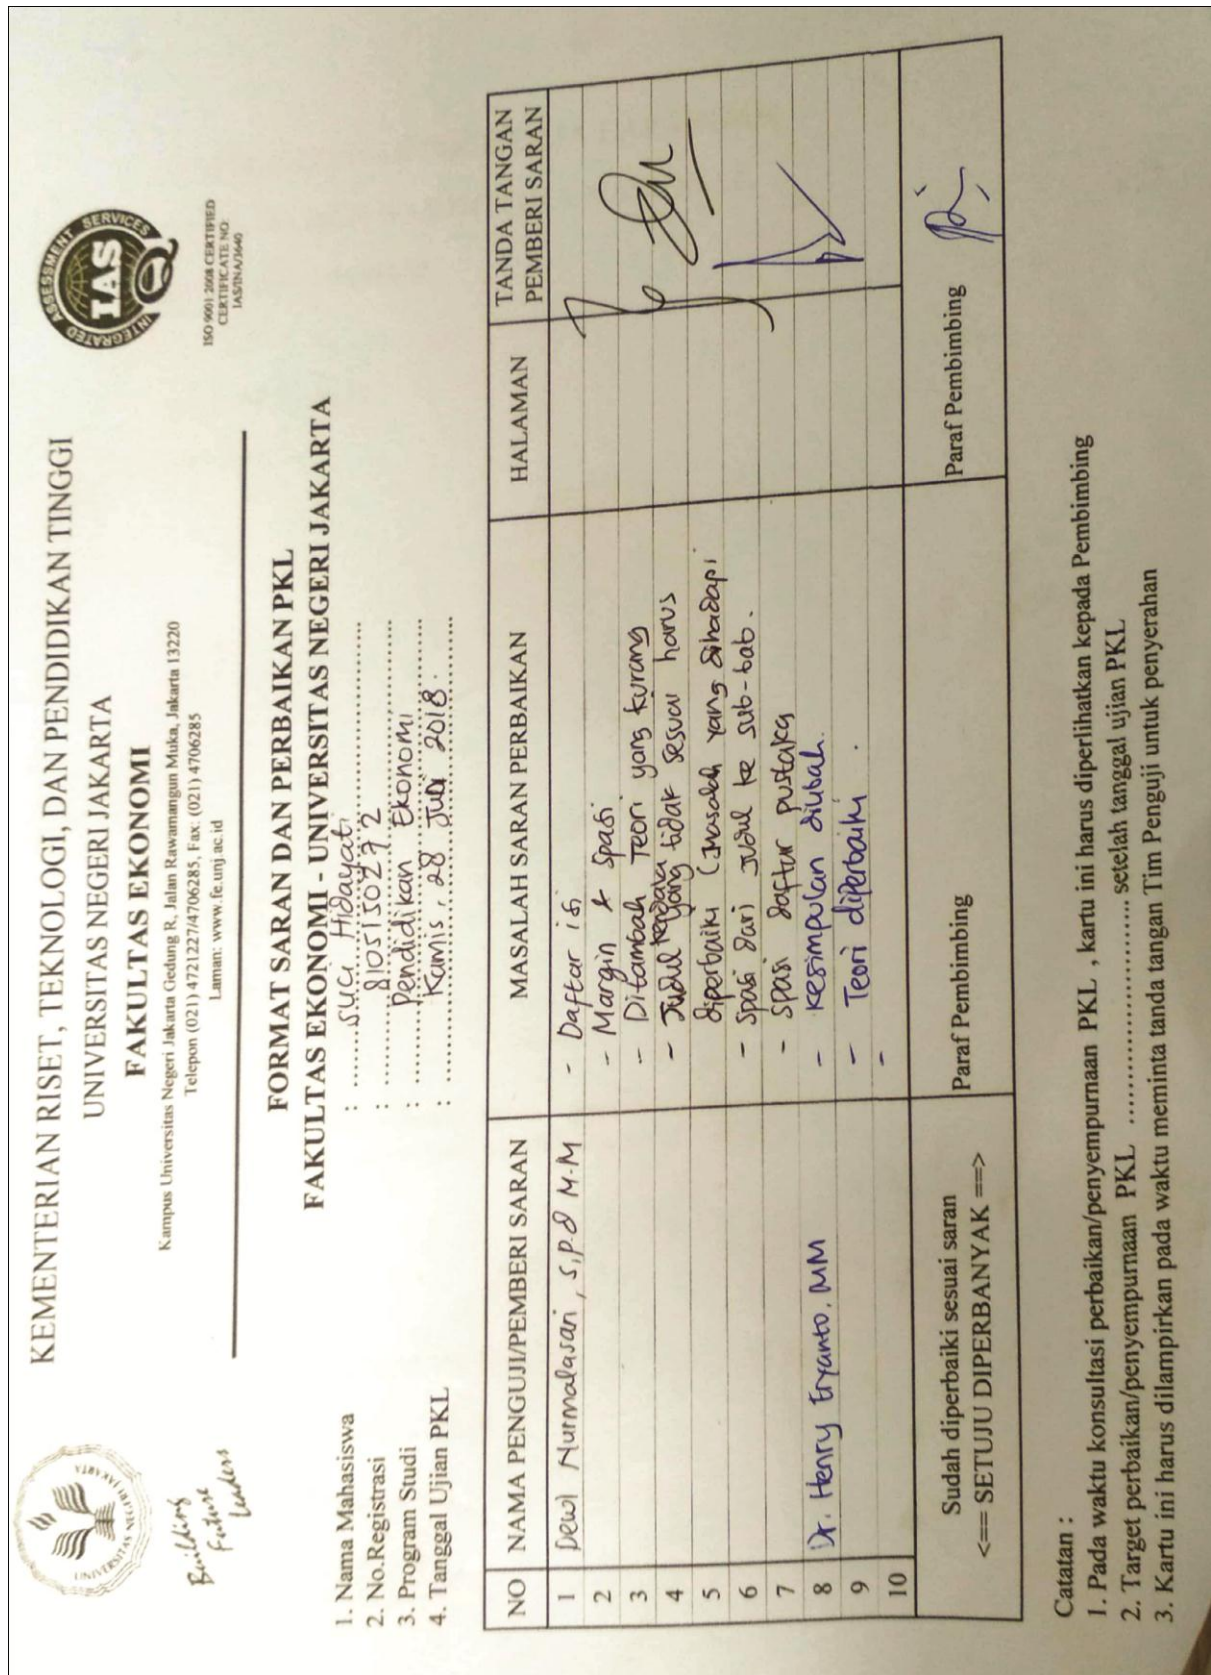 KEMENTERIAN RISET, TEKNOLOGI, DAN PENDIDIKAN TINGGI
UNIVERSITAS NEGERI JAKARTA
FAKULTAS EKONOMI
Kampus Universitas Negeri Jakarta Gedung R, Jalan Rawamangun Muka, Jakarta 13220
Telepon (021) 4721227/4706285, Fax: (021) 4706285
Laman: www.fe.unj.ac.id
UNIVERSITAS NEGERI JAKARTA
Building
Future
Leaders
INTEGRATED ASSESSMENT SERVICES
IAS
ISO 9001:2008 CERTIFIED
CERTIFICATE NO:
IAS/INA/3640
FORMAT SARAN DAN PERBAIKAN PKL
FAKULTAS EKONOMI - UNIVERSITAS NEGERI JAKARTA
1. Nama Mahasiswa : Suci Hidayati
2. No.Registrasi : 8105150272
3. Program Studi : Pendidikan Ekonomi
4. Tanggal Ujian PKL : Kamis, 28 Juni 2018
NO NAMA PENGUJI/PEMBERI SARAN MASALAH SARAN PERBAIKAN HALAMAN TANDA TANGAN PEMBERI SARAN
1 Dewi Nurmalasari, S.Pd M.M - Daftar isi
2 - Margin & Spasi
3 - Ditambah Teori yang kurang
4 - Judul kendala yang tidak sesuai harus
5 diperbaiki (masalah yang dihadapi
6 - Spasi dari judul ke sub-bab.
7 - Spasi daftar pustaka
8 Dr. Henry Eryanto, MM - Kesimpulan diubah.
9 - Teori diperbaiki.
10 -
Sudah diperbaiki sesuai saran
<== SETUJU DIPERBANYAK ==>
Paraf Pembimbing
Paraf Pembimbing
Catatan :
1. Pada waktu konsultasi perbaikan/penyempurnaan PKL , kartu ini harus diperlihatkan kepada Pembimbing
2. Target perbaikan/penyempurnaan PKL .............................. setelah tanggal ujian PKL
3. Kartu ini harus dilampirkan pada waktu meminta tanda tangan Tim Penguji untuk penyerahan